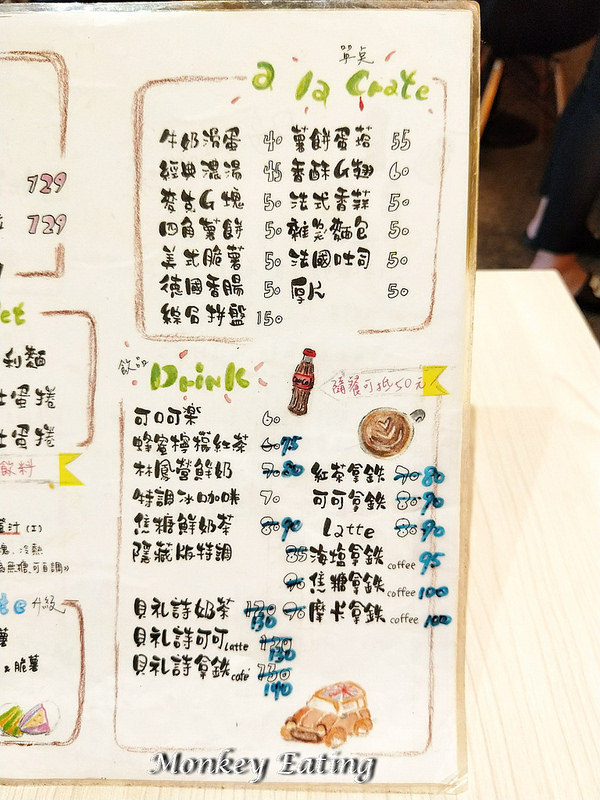 129
129
利麵
士蛋捲
士蛋捲
飲料
冷熱
升級
薯
& 脆薯
單點
a la Crate
牛奶滑蛋 40
經典濃湯 45
麥克G塊 50
四角薯餅 50
美式脆薯 50
德國香腸 50
綜合拼盤 150
薯餅蛋塔 55
香酥G翅 60
法式香蒜 50
雜糧麵包 50
法國吐司 50
厚片 50
飲品
Drink
隨餐可抵50元
可口可樂 60
蜂蜜檸檬紅茶 60 75
林鳳營鮮奶 70 80
特調冰咖啡 70
焦糖鮮奶茶 80 90
隱藏版特調
貝禮詩奶茶 120 130
貝禮詩可可Latte 120 130
貝禮詩拿鐵café 130 140
紅茶拿鐵 70 80
可可拿鐵 80 90
Latte 80 90
85 海塩拿鐵coffee 95
90 焦糖拿鐵coffee 100
90 摩卡拿鐵coffee 100
Monkey Eating